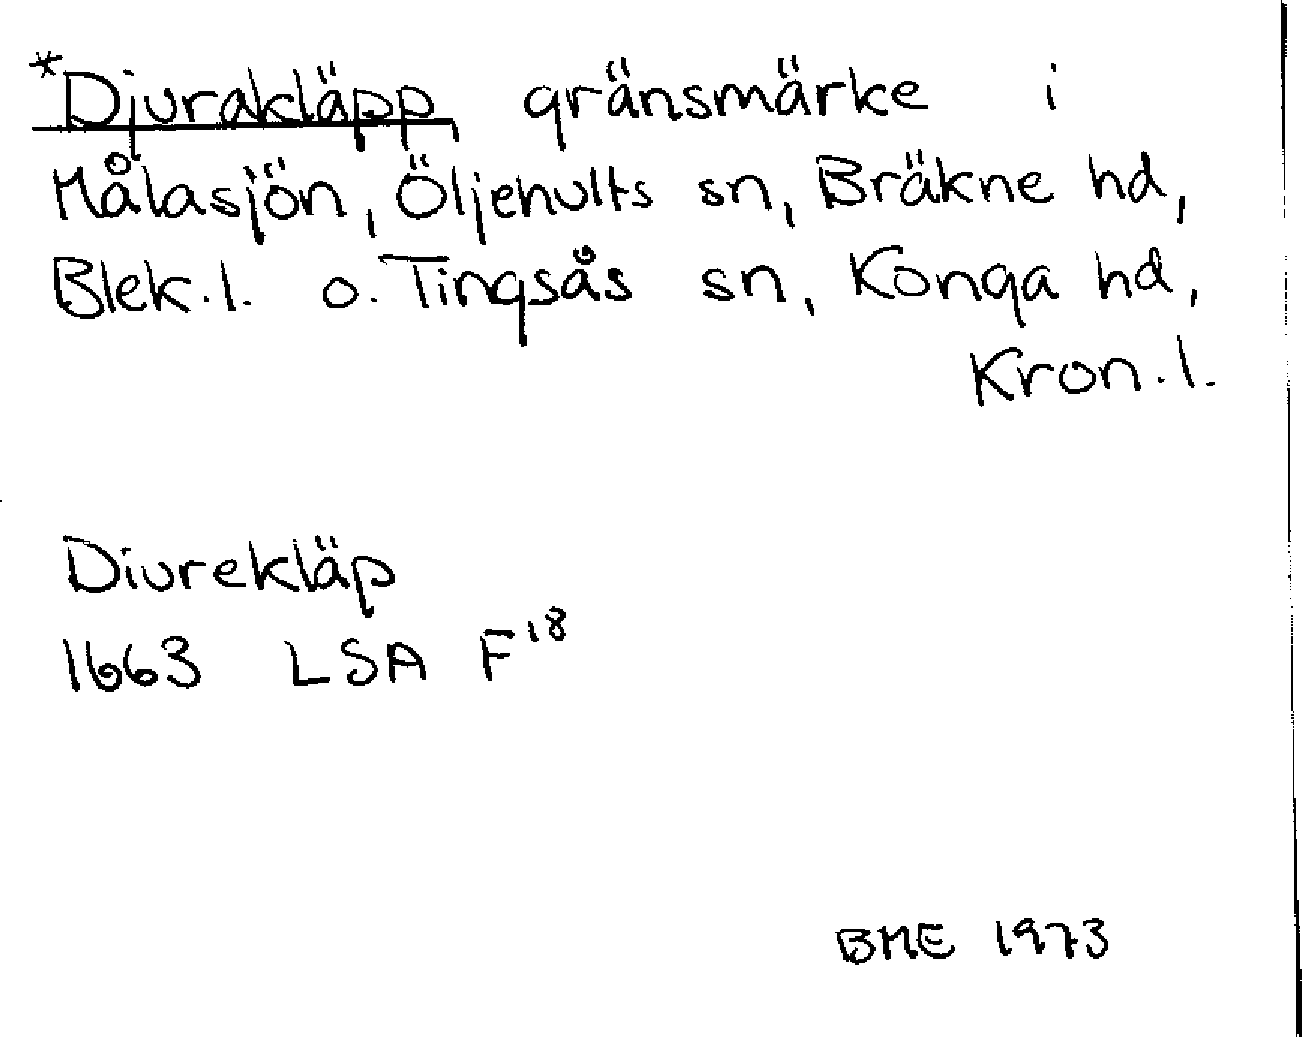 *Djurakläpp, gränsmärke i
Målasjön, Öljehults sn, Bräkne hd,
Blek.l. o. Tingsås sn, Konga hd,
Kron.l.
Diurekläp
1663 LSA F18
BME 1973